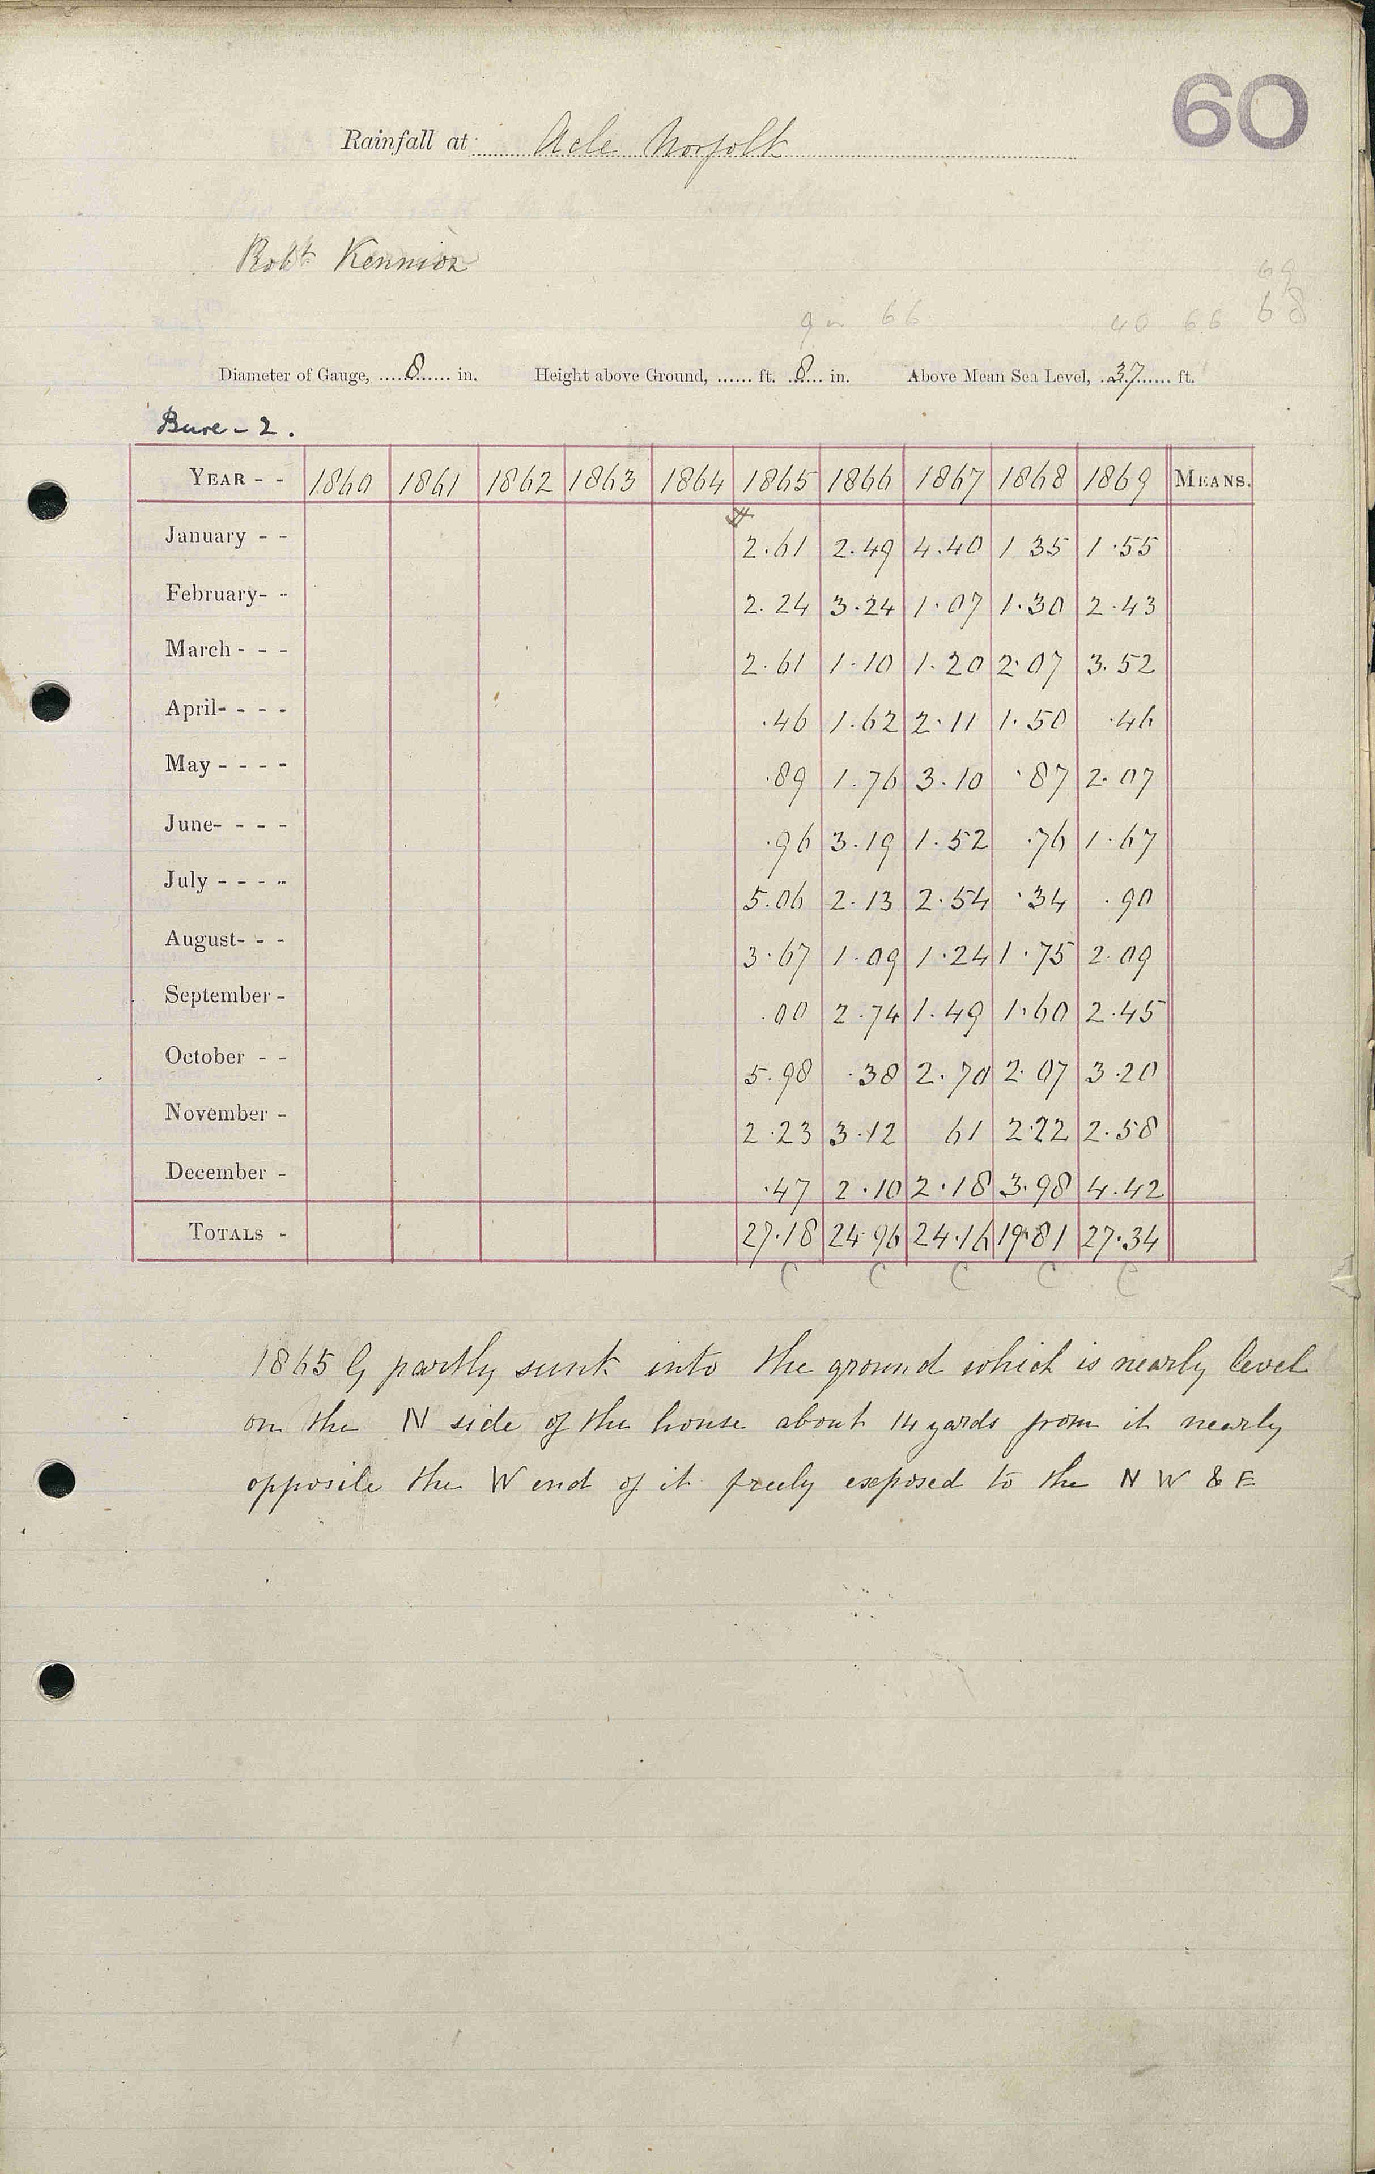 60
Rainfall at Acle Norfolk
Robt Kennion
69
9 in 66 40 66 68
Diameter of Gauge, 8 in. Height above Ground, ...... ft. 8 in. Above Mean Sea Level, 37 ft.
Bure - 2.
YEAR - - 1860 1861 1862 1863 1864 1865 1866 1867 1868 1869 MEANS.
January - - 2.61 2.49 4.40 1 35 1.55
February- - 2.24 3.24 1.07 1.30 2.43
March - - - 2.61 1.10 1.20 2.07 3.52
April- - - - .46 1.62 2.11 1.50 .46
May - - - - .89 1.76 3.10 .87 2.07
June- - - - .96 3.19 1.52 .76 1.67
July - - - - 5.06 2.13 2.54 .34 .90
August- - - 3.67 1.09 1.24 1.75 2.09
September - .00 2.74 1.49 1.60 2.45
October - - 5.98 .38 2.70 2.07 3.20
November - 2.23 3.12 61 2.22 2.58
December - .47 2.10 2.18 3.98 4.42
TOTALS - 27.18 24.96 24.16 19.81 27.34
C C C C C
1865 G partly sunk into the ground which is nearly level
on the N side of the house about 14 yards from it nearly
opposite the W end of it freely exposed to the N W & E